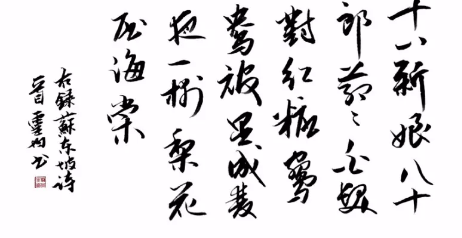 十八新娘八十
郎蒼々白髮
對紅粧鴛
鴦被里成雙
夜一樹梨花
壓海棠
右録蘇東坡诗